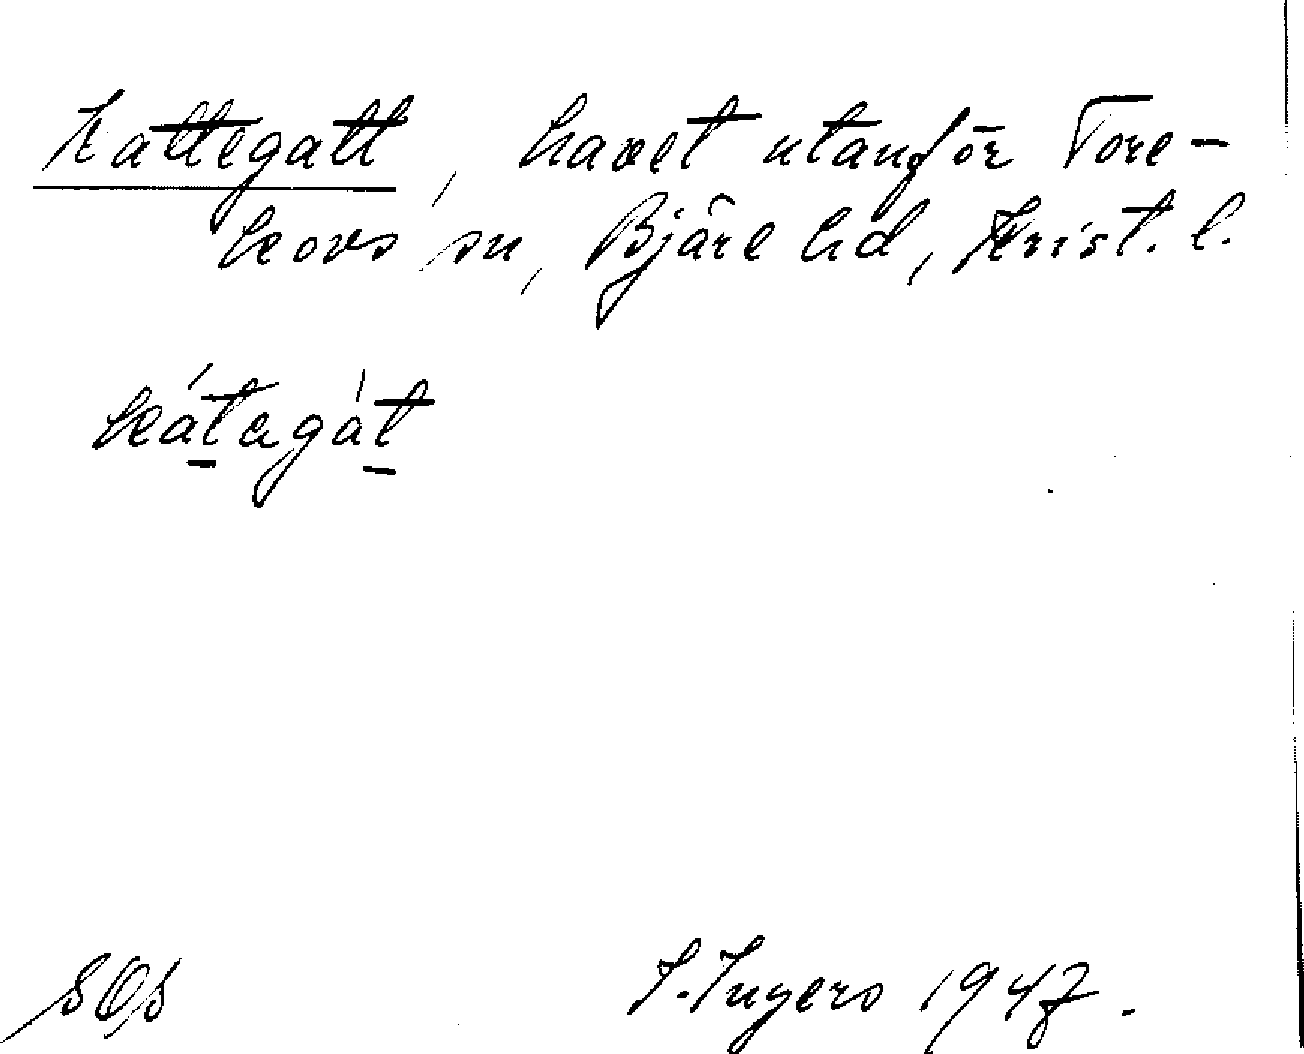 Kattegatt, havet utanför Tore-
kovs sn, Bjäre hd, Krist. l.
kátagát
I. Ingers 1947.